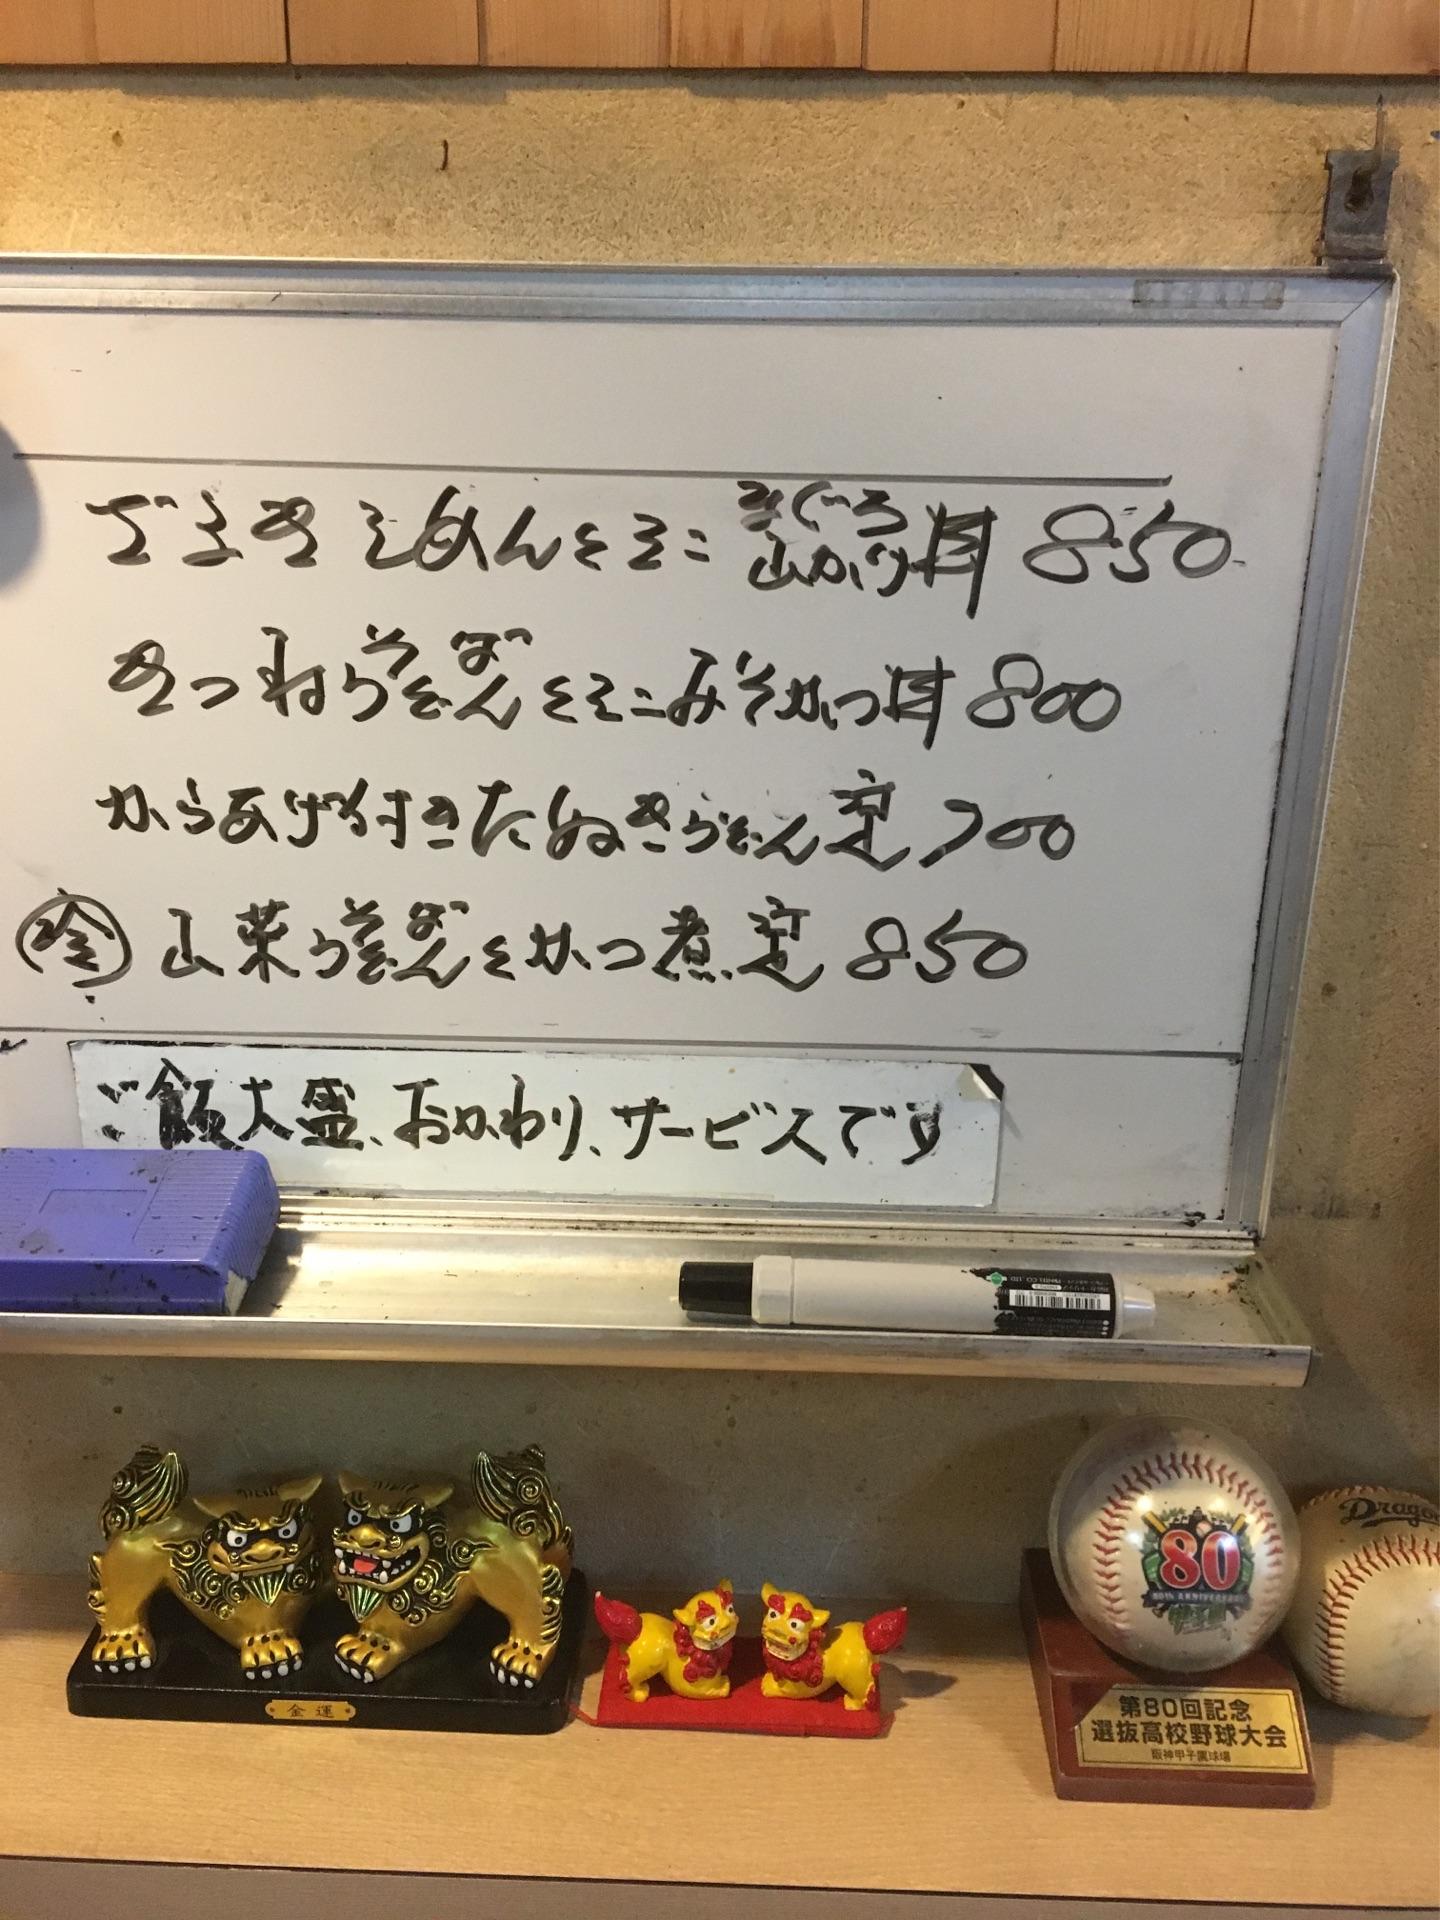 できそめんとミニまぐろ山かけ丼 850
きつねうどんそばとミニみそかつ丼 800
からあげ付きたぬきうどん定 700
冷 山菜うどんそばとかつ煮定 850
ご飯大盛、おかわり、サービスです
金運
80
80TH ANNIVERSARY
第80回記念
選抜高校野球大会
阪神甲子園球場
Drago